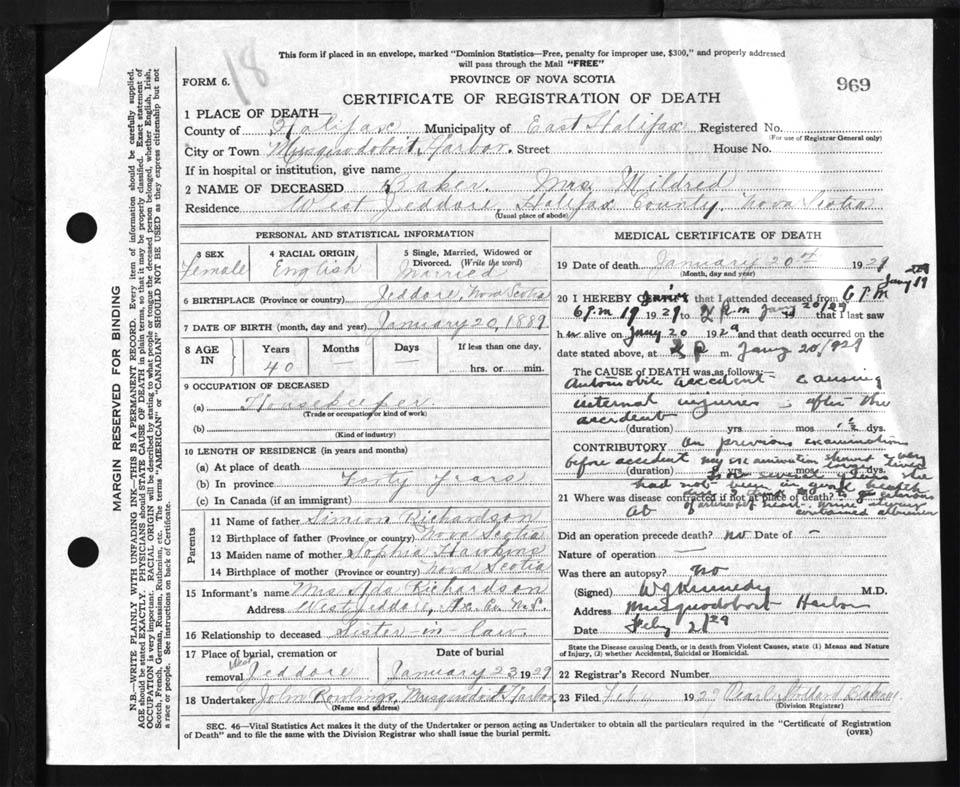 18
This form if placed in an envelope, marked "Dominion Statistics—Free, penalty for improper use, $300," and properly addressed
will pass through the Mail "FREE"
FORM 6.
PROVINCE OF NOVA SCOTIA
969
CERTIFICATE OF REGISTRATION OF DEATH
1 PLACE OF DEATH
County of Halifax Municipality of East Halifax Registered No.
(For use of Registrar General only)
City or Town Musquodoboit Harbor. Street House No.
If in hospital or institution, give name
2 NAME OF DECEASED Baker. Mrs Mildred
Residence West Jeddore, Halifax County, Nova Scotia
(Usual place of abode)
PERSONAL AND STATISTICAL INFORMATION
3 SEX 4 RACIAL ORIGIN 5 Single, Married, Widowed or
Divorced. (Write the word)
Female English Married
6 BIRTHPLACE (Province or country) Jeddore, Nova Scotia
7 DATE OF BIRTH (month, day and year) January 20, 1889
8 AGE IN Years Months Days If less than one day,
40 — hrs. or min.
9 OCCUPATION OF DECEASED
(a) Housekeeper.
(Trade or occupation or kind of work)
(b)
(Kind of industry)
10 LENGTH OF RESIDENCE (in years and months)
(a) At place of death
(b) In province Forty years
(c) In Canada (if an immigrant)
Parents
11 Name of father Simon Richardson
12 Birthplace of father (Province or country) Nova Scotia
13 Maiden name of mother Sophia Hawkins
14 Birthplace of mother (Province or country) Nova Scotia
15 Informant's name Mrs Ada Richardson
Address West Jeddore, Hx. Co. N.S.
16 Relationship to deceased Sister-in-law.
17 Place of burial, cremation or Date of burial
removal West Jeddore January 23 1929
18 Undertaker John Rowlings, Musquodoboit Harbor
(Name and address)
MEDICAL CERTIFICATE OF DEATH
19 Date of death January 20th 1929
(Month, day and year)
20 I HEREBY that I attended deceased from 6 P.M Jany 19
6 P.M 19 1929 to P.M Jany 20/29 that I last saw
her alive on Jany 20 1929 and that death occurred on the
date stated above, at P m. Jany 20/1929
The CAUSE OF DEATH was as follows:
Automobile accident causing
internal injuries after the
accident
(duration) yrs mos 1½ dys.
CONTRIBUTORY On previous examination
before accident my examination showed very
(duration) yrs mos dys.
for several years she
had not been in good health
21 Where was disease contracted if not at place of death?
of arteries of heart. urine always
contained albumen
Did an operation precede death? no Date of —
Nature of operation —
Was there an autopsy? no
(Signed) W J Kennedy M.D.
Address Musquodoboit Harbor
Date Feby 2/29
State the Disease causing Death, or in death from Violent Causes, state (1) Means and Nature
of Injury, (2) whether Accidental, Suicidal or Homicidal.
22 Registrar's Record Number
23 Filed Feb. 1929 Pearl
(Division Registrar)
SEC. 46—Vital Statistics Act makes it the duty of the Undertaker or person acting as Undertaker to obtain all the particulars required in the "Certificate of Registration
of Death" and to file the same with the Division Registrar who shall issue the burial permit. (OVER)
MARGIN RESERVED FOR BINDING
N.B.—WRITE PLAINLY WITH UNFADING INK—THIS IS A PERMANENT RECORD. Every item of information should be carefully supplied.
AGE should be stated EXACTLY. PHYSICIANS should STATE CAUSE OF DEATH in plain terms, so that it may be properly classified. Exact statement of
OCCUPATION is very important. RACIAL ORIGIN will be described by stating to what people or tongue the deceased person belonged, whether English, Irish,
Scotch, French, German, Russian, Ruthenian, etc. The terms "AMERICAN" or "CANADIAN" SHOULD NOT BE USED as they express citizenship but not
a race or people. See instructions on back of Certificate.